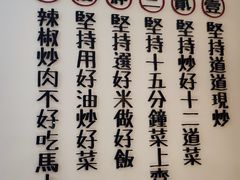 壹
堅持道道現炒
貳
堅持炒好十二道菜
堅持十五分鐘菜上齊
堅持選好米做好飯
堅持用好油炒好菜
辣椒炒肉不好吃馬上